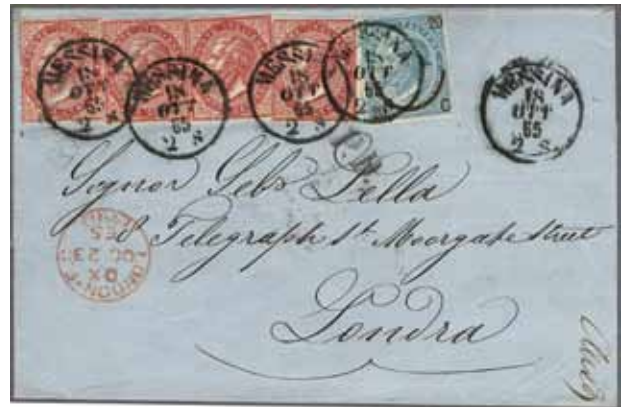 MESSINA 18 OTT 65 2 S
MESSINA 18 OTT 65 2 S
MESSINA 18 OTT 65 2 S
MESSINA 18 OTT 65 2 S
MESSINA 18 OTT 65 2 S
20
C
P.D.
Signor
Pella
8 Telegraph St. Moorgate Street
Londra
LONDON
OX
OC 23
65
PAID